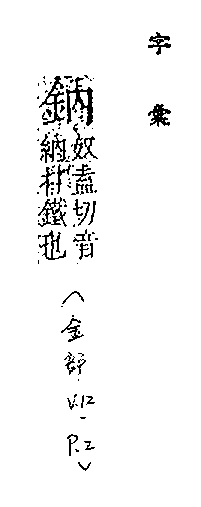 字彙
鈉奴盍切音
納鐵也
(金部 V.12-P.2)